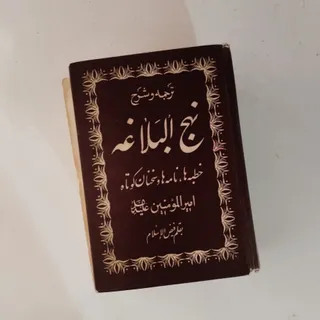 ترجمه و شرح
نهج البلاغه
خطبه‌ها، نامه‌ها و سخنان کوتاه
امیرالمؤمنین علیه السلام
بقلم فیض الاسلام